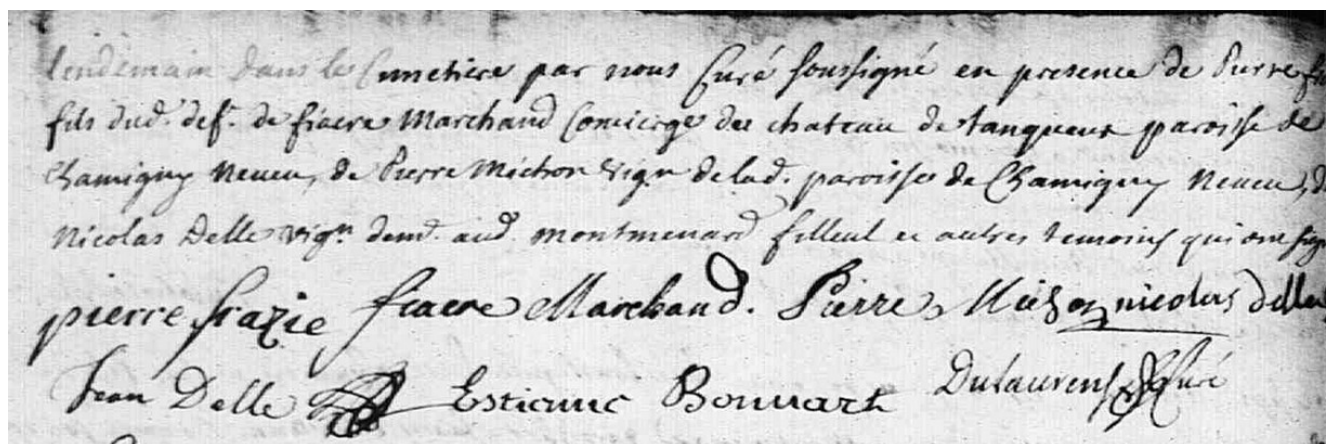 lendemain dans le Cimetiere par nous Curé soussigné en presence de Pierre
fils dud. def. de fiacre Marchand Concierge du chateau de tanqueux paroisse de
Chamigny neveu, de Pierre Michon vign de lad. paroisse de Chamigny neveu,
Nicolas Delle vign. dem. aud. montmenard filleul et autres temoins qui ont
pierre frazie fiacre Marchand. Pierre Michon nicolas delle
Jean Delle Estienne Bonnart Dulaurens Curé